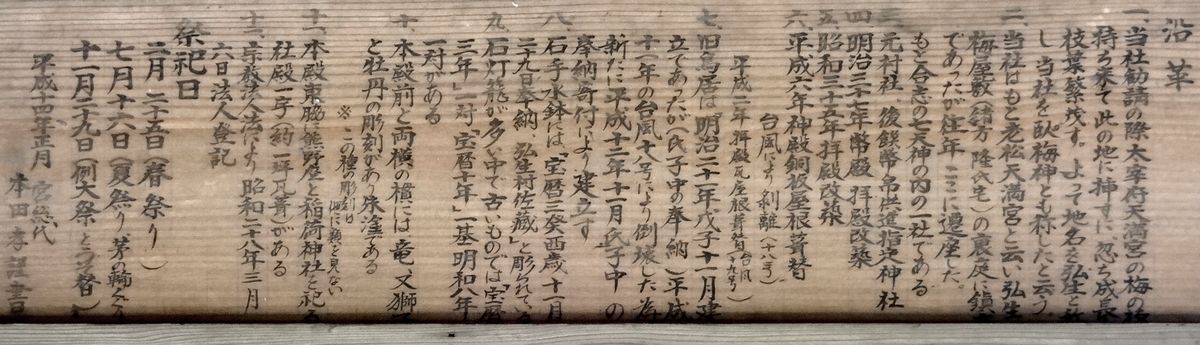 沿革
一、当社勧請の際太宰府天満宮の梅の枝
持ち来て此の地に挿すに忽ち成長
枝葉繁茂す。よって地名を弘生と
し、当社を臥梅神とも称したと云う
二、当社はもと老松天満宮と云い弘生
梅屋敷(緒方 隆氏宅)の裏庭に鎮
であったが往年 ここに遷座した。
もと合志の七天神の内の一社である
三、元村社 後餞幣帛供進指定神社
四、明治三十七年幣殿 拝殿改築
五、昭和三十五年拝殿改築
六、平成六年神殿銅板屋根葺替
台風により剥離(十八号)
平成二年拝殿瓦屋根葺替(台風十九号)
七、旧鳥居は明治二十一年戊子十一月建
立であったが(氏子中の奉納)平成
十一年の台風十八号により倒壊した為
新たに平成十二年十一月氏子中 の
奉納寄付により建立す
八、石手水鉢には、「宝暦三癸酉歳十一月
二十九日奉納、弘生村佐蔵」と彫られている
九、石灯籠が多い中で古いものでは「宝暦
三年」一対「宝暦十年」一基明和八年
一対がある
十、本殿前と両横の横には 竜、又獅
と牡丹の彫刻があり朱塗である
※この種の彫刻は 他に類を見ない
十一、本殿東脇に熊野座と稲荷神社を祀る
社殿一宇 約一坪瓦葺がある
十二、宗教法人法により 昭和二十八年三月
六日法人登記
祭祀日
二月 二十五日(春祭り)
七月 十六日(夏祭り、茅の輪くぐり
十一月二十九日(例大祭
平成十四年正月 宮総代
本田 孝 謹書